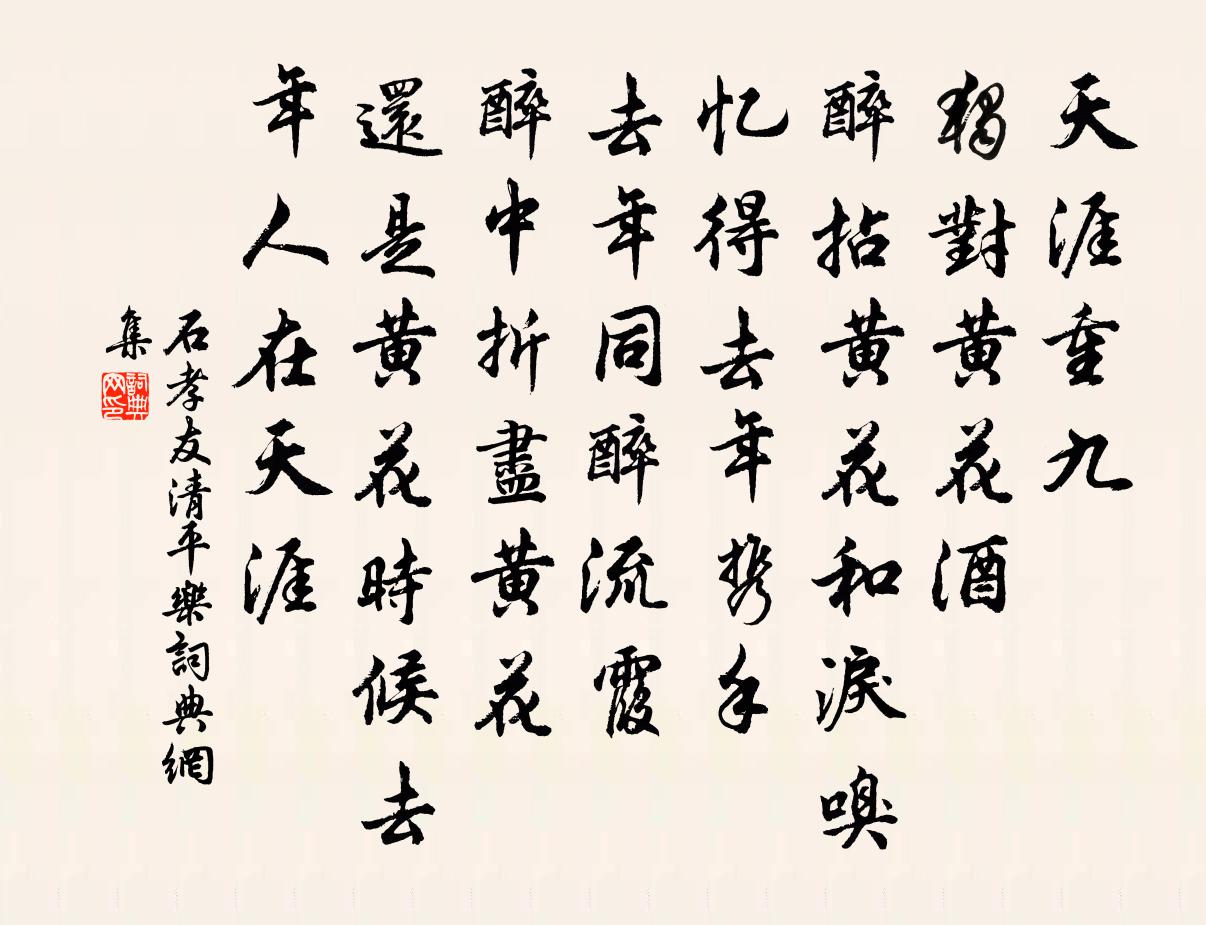 天涯重九
獨對黄花酒
醉拈黄花和淚嗅
忆得去年携手
去年同醉流霞
醉中折盡黄花
還是黄花時候去
年人在天涯
石孝友清平樂詞典網
集
詞典網印